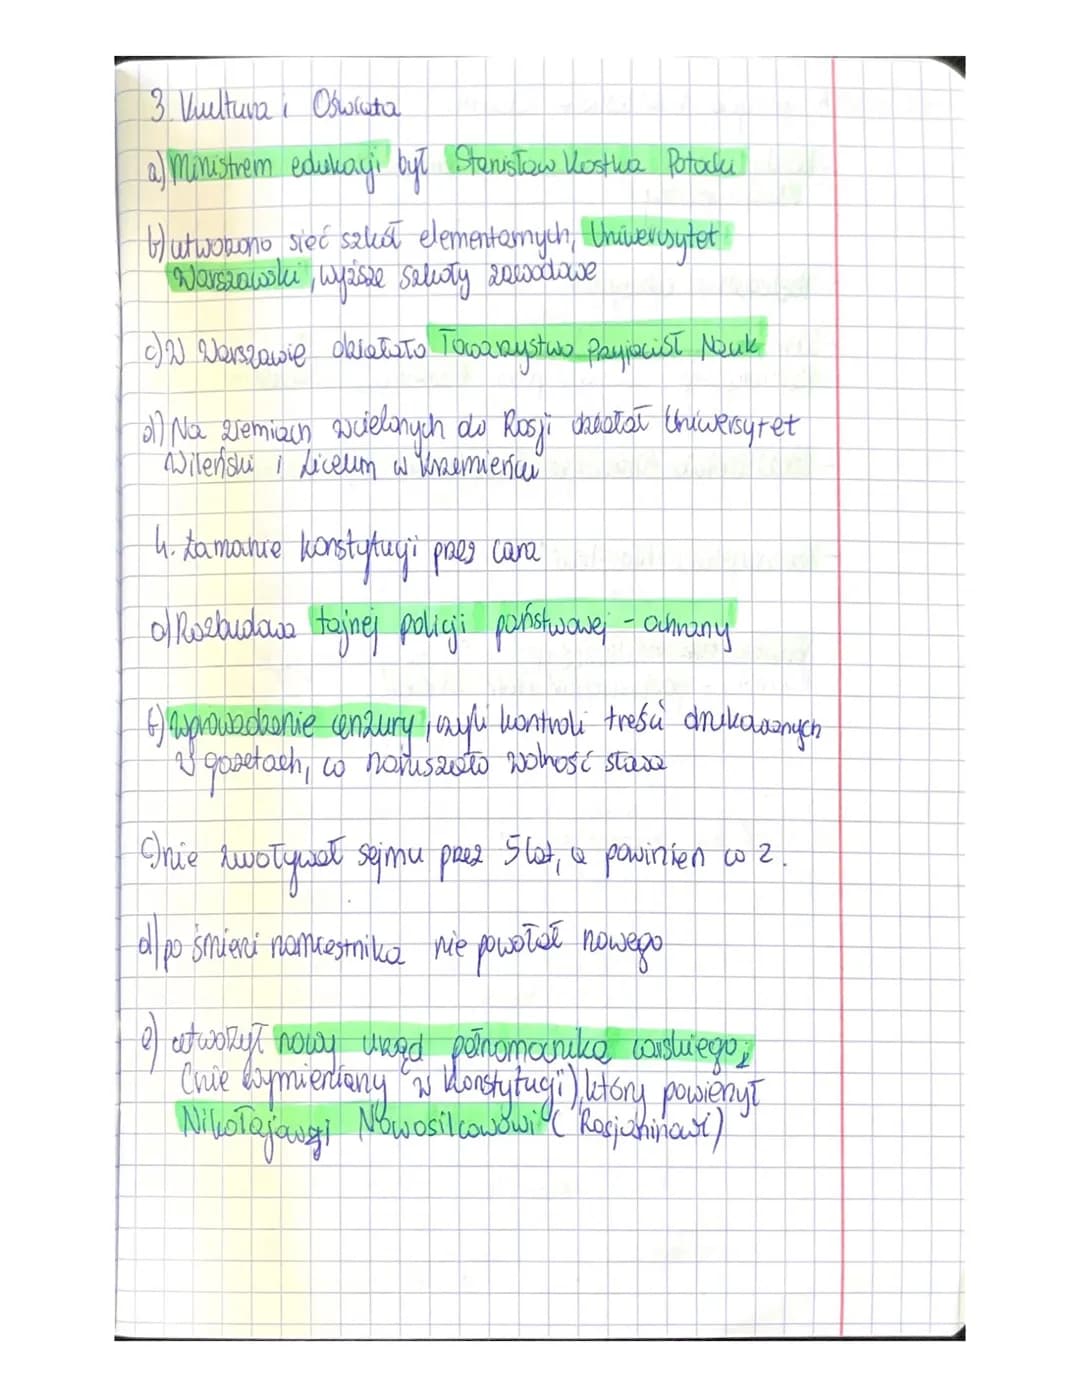 3. Kultura i Oświata
a) Ministrem edukacji był Stanisław Kostka Potocki
b) utworzono sieć szkół elementarnych, Uniwersytet
Warszawski, wyższe szkoły zawodowe
c) W Warszawie działało Towarzystwo Przyjaciół Nauk
d) Na ziemiach wcielonych do Rosji działał Uniwersytet
Wileński i Liceum w Krzemieńcu
4. Łamanie konstytucji przez cara
a) Rozbudowa tajnej policji państwowej - ochrany
b) Wprowadzenie cenzury, czyli kontroli treści drukowanych
w gazetach, co naruszało wolność słowa
c) nie zwoływał sejmu przez 5 lat, a powinien co 2.
d) po śmierci namiestnika nie powołał nowego
e) utworzył nowy urząd pełnomocnika carskiego;
(nie wymieniany w Konstytucji), który powierzył
Nikołajowi Nowosilcowowi (Rosjaninowi)